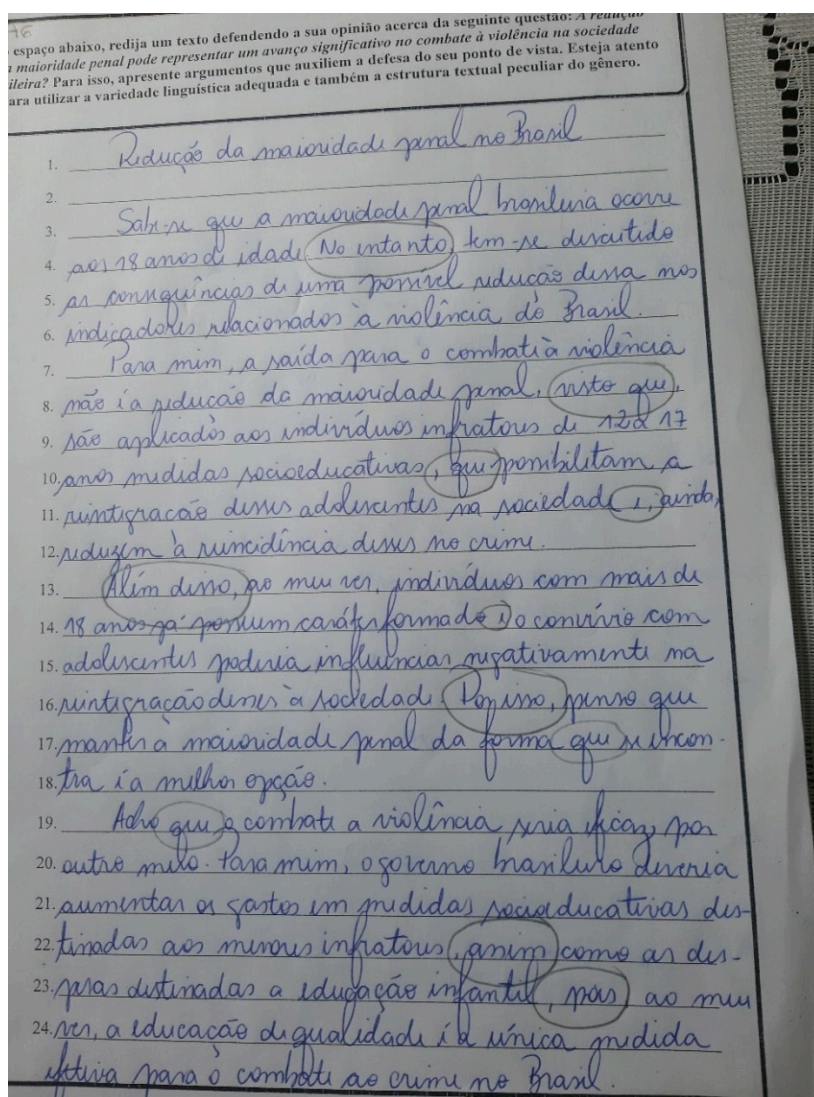 76
espaço abaixo, redija um texto defendendo a sua opinião acerca da seguinte questão: A redução
maioridade penal pode representar um avanço significativo no combate à violência na sociedade
ileira? Para isso, apresente argumentos que auxiliem a defesa do seu ponto de vista. Esteja atento
ara utilizar a variedade linguística adequada e também a estrutura textual peculiar do gênero.
1. Redução da maioridade penal no Brasil
2.
3. Sabe-se que a maioridade penal brasileira ocorre
4. aos 18 anos de idade. No entanto, tem-se discutido
5. as consequências de uma possível redução dessa nos
6. indicadores relacionados à violência do Brasil.
7. Para mim, a saída para o combate à violência
8. não é a redução da maioridade penal, visto que,
9. são aplicados aos indivíduos infratores de 12 a 17
10. anos medidas socioeducativas, que possibilitam a
11. reintegração desses adolescentes na sociedade e, ainda,
12. reduzem à reincidência desses no crime.
13. Além disso, ao meu ver, indivíduos com mais de
14. 18 anos já possuem caráter formado e o convívio com
15. adolescentes poderia influenciar negativamente na
16. reintegração desses à sociedade. Por isso, penso que
17. manter a maioridade penal da forma que se encon-
18. tra é a melhor opção.
19. Acho que o combate a violência seria eficaz por
20. outro meio. Para mim, o governo brasileiro deveria
21. aumentar os gastos em medidas socioeducativas des-
22. tinadas aos menores infratores, assim como as des-
23. pesas destinadas a educação infantil, pois ao meu
24. ver, a educação de qualidade é a única medida
efetiva para o combate ao crime no Brasil.